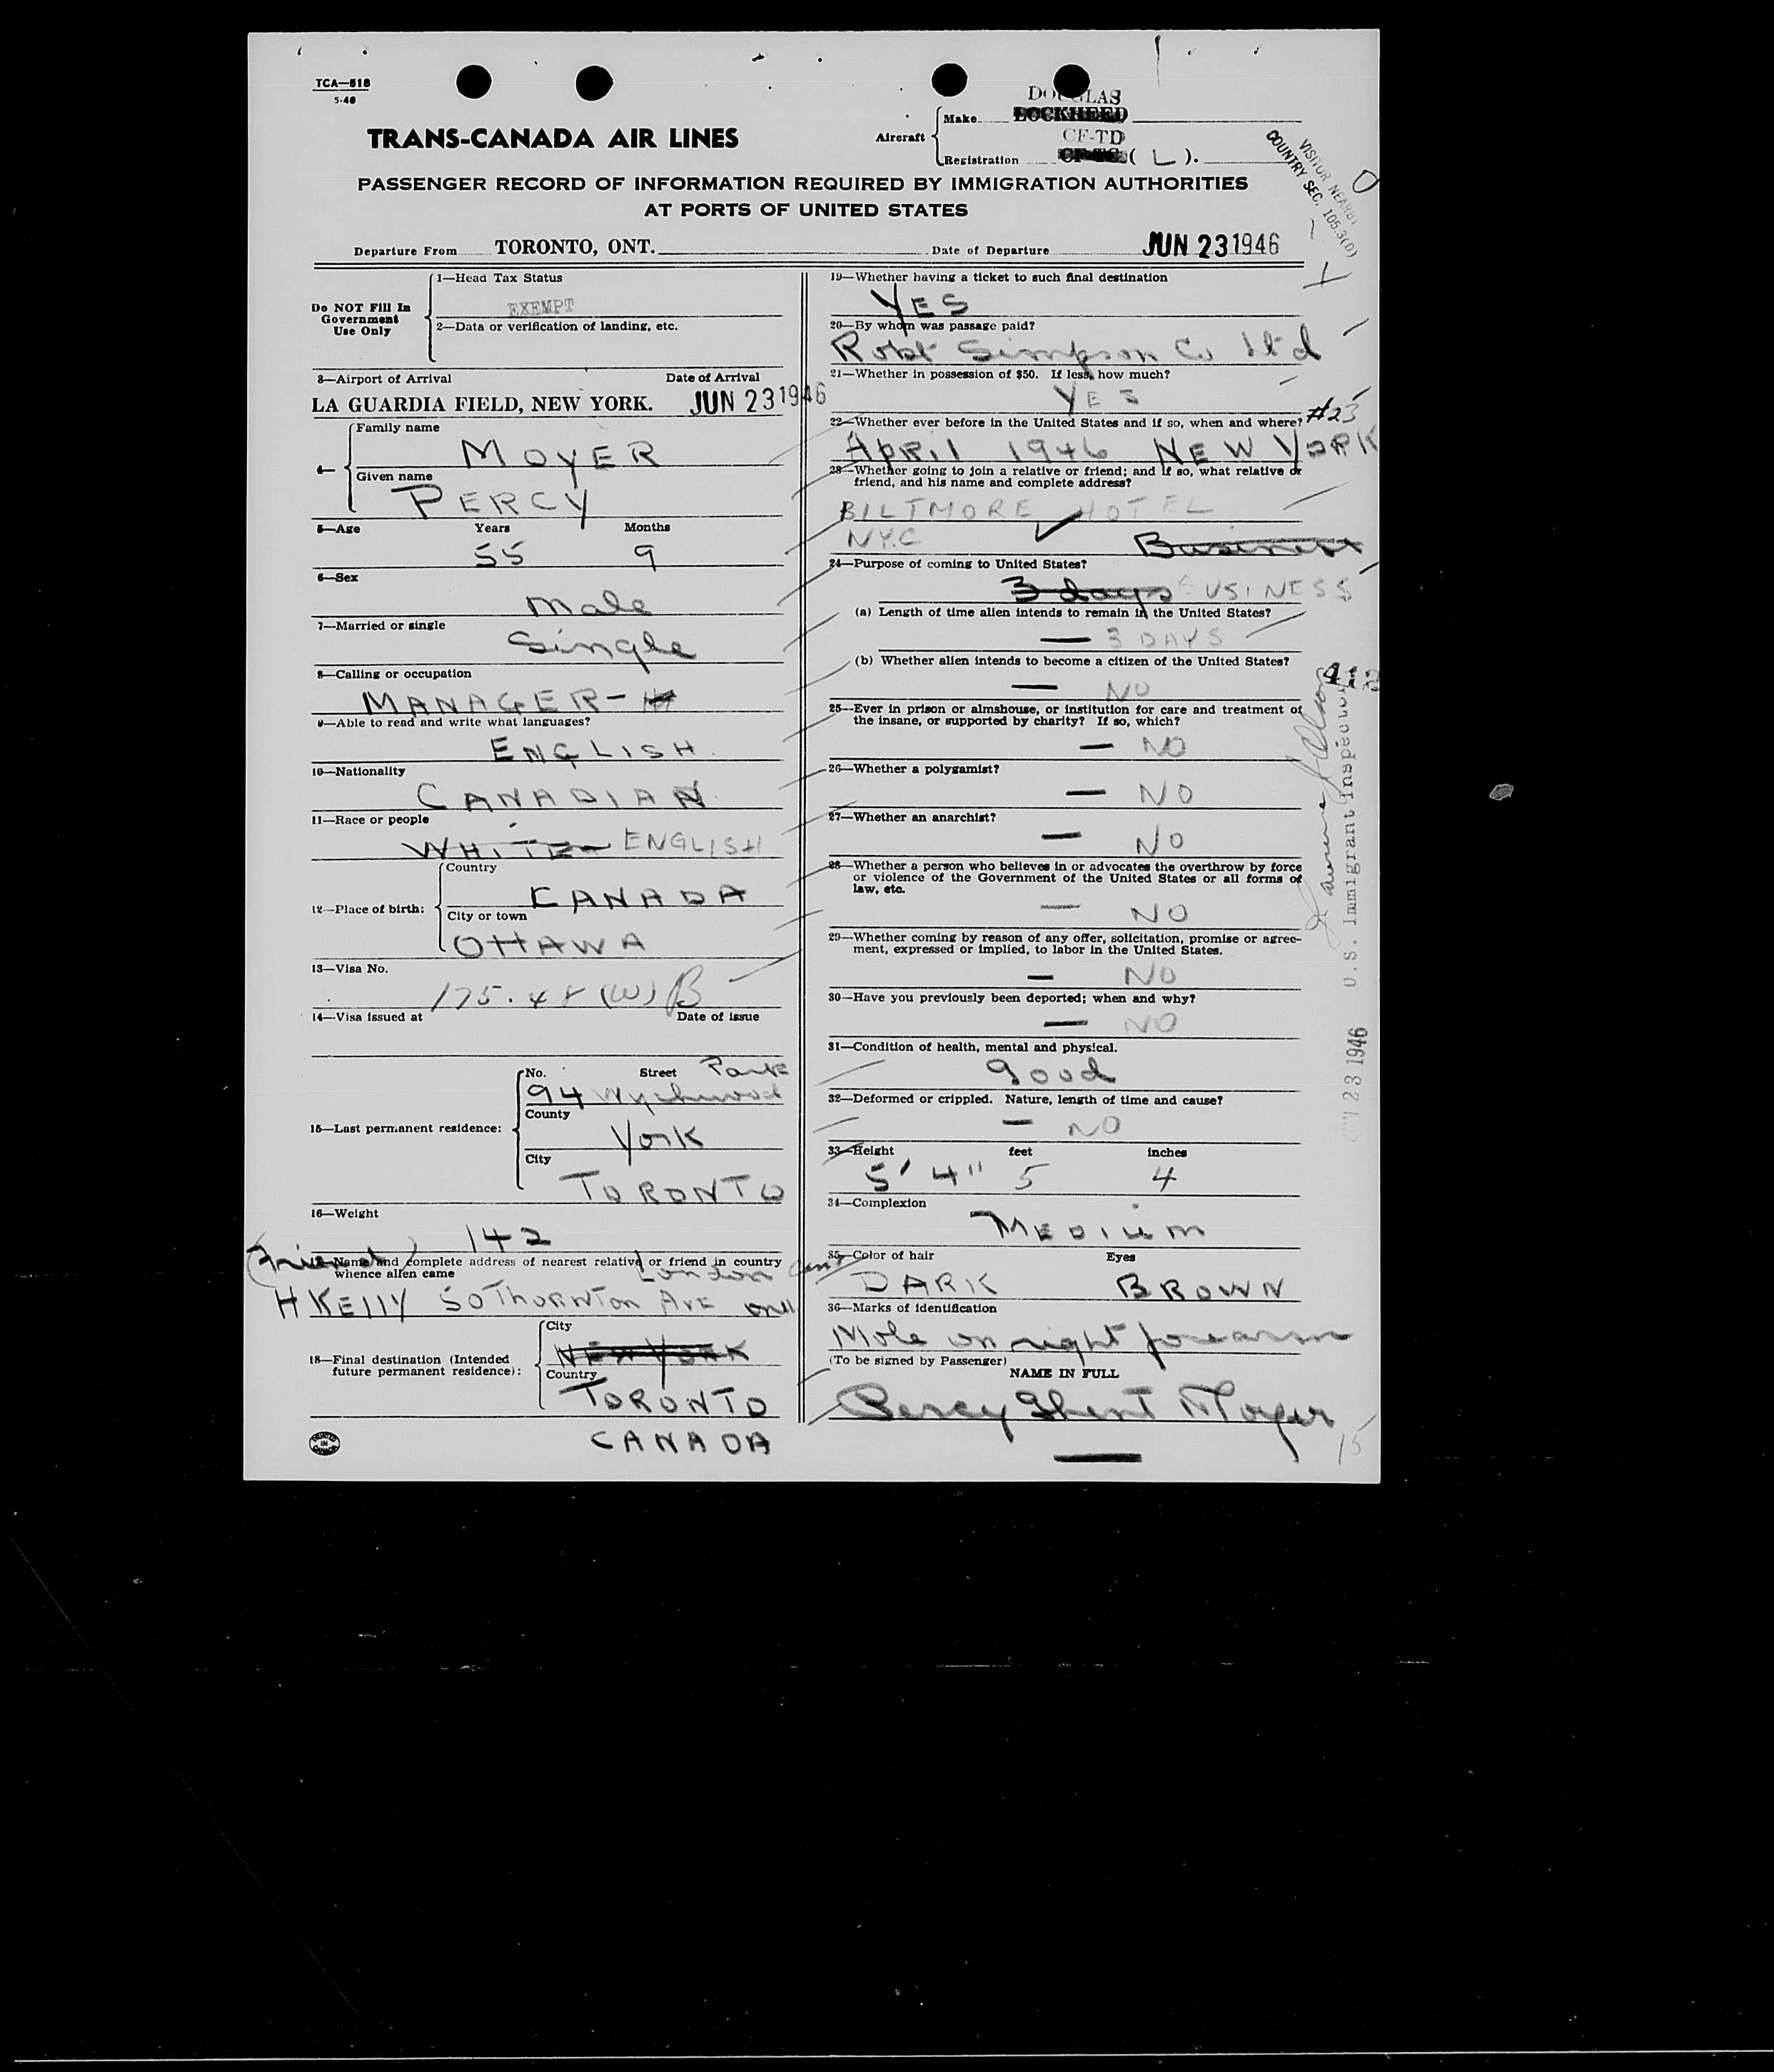 TCA—518
5-40
TRANS-CANADA AIR LINES
DOUGLAS
Aircraft
Make LOCKHEED
CF-TD
Registration ( L ).
VISITOR NEARBY
COUNTRY SEC. 105.3(0)
PASSENGER RECORD OF INFORMATION REQUIRED BY IMMIGRATION AUTHORITIES
AT PORTS OF UNITED STATES
Departure From TORONTO, ONT. Date of Departure JUN 23 1946
Do NOT Fill In
Government
Use Only
1—Head Tax Status
EXEMPT
2—Data or verification of landing, etc.
3—Airport of Arrival Date of Arrival
LA GUARDIA FIELD, NEW YORK. JUN 23 1946
4—
Family name
MOYER
Given name
PERCY
5—Age Years Months
55 9
6—Sex
Male
7—Married or single
Single
8—Calling or occupation
MANAGER-
9—Able to read and write what languages?
ENGLISH
10—Nationality
CANADIAN
11—Race or people
WHITE ENGLISH
12—Place of birth:
Country
CANADA
City or town
OTTAWA
13—Visa No.
175.48 (W) B
14—Visa issued at Date of issue
15—Last permanent residence:
No. Street Park
94 Wychwood
County
York
City
TORONTO
16—Weight
142
(Friend)
17—Name and complete address of nearest relative or friend in country
whence alien came London
H KELLY 50 THORNTON AVE Ont
18—Final destination (Intended
future permanent residence):
City
NEW YORK
Country
TORONTO
CANADA
PRINTED IN CANADA
19—Whether having a ticket to such final destination
YES
20—By whom was passage paid?
Robt Simpson Co Ltd
21—Whether in possession of $50. If less, how much?
YES
22—Whether ever before in the United States and if so, when and where? #23
APRIL 1946 NEW YORK
23—Whether going to join a relative or friend; and if so, what relative or
friend, and his name and complete address?
BILTMORE HOTEL
NYC Business
24—Purpose of coming to United States?
3 days BUSINESS
(a) Length of time alien intends to remain in the United States?
— 3 DAYS
(b) Whether alien intends to become a citizen of the United States?
— NO
25—Ever in prison or almshouse, or institution for care and treatment of
the insane, or supported by charity? If so, which?
— NO
26—Whether a polygamist?
— NO
27—Whether an anarchist?
— NO
28—Whether a person who believes in or advocates the overthrow by force
or violence of the Government of the United States or all forms of
law, etc.
— NO
29—Whether coming by reason of any offer, solicitation, promise or agree-
ment, expressed or implied, to labor in the United States.
— NO
30—Have you previously been deported; when and why?
— NO
31—Condition of health, mental and physical.
good
32—Deformed or crippled. Nature, length of time and cause?
— NO
33—Height feet inches
5' 4" 5 4
34—Complexion
MEDIUM
35—Color of hair Eyes
DARK BROWN
36—Marks of identification
Mole on right forearm
(To be signed by Passenger)
NAME IN FULL
Percy Ghent Moyer
15
U.S. Immigrant Inspector
23 1946